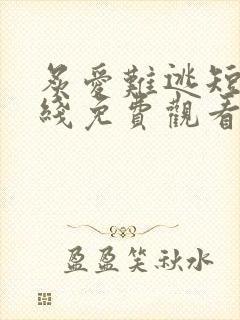 炙愛難逃短
綫免費觀看
盈盈笑秋水